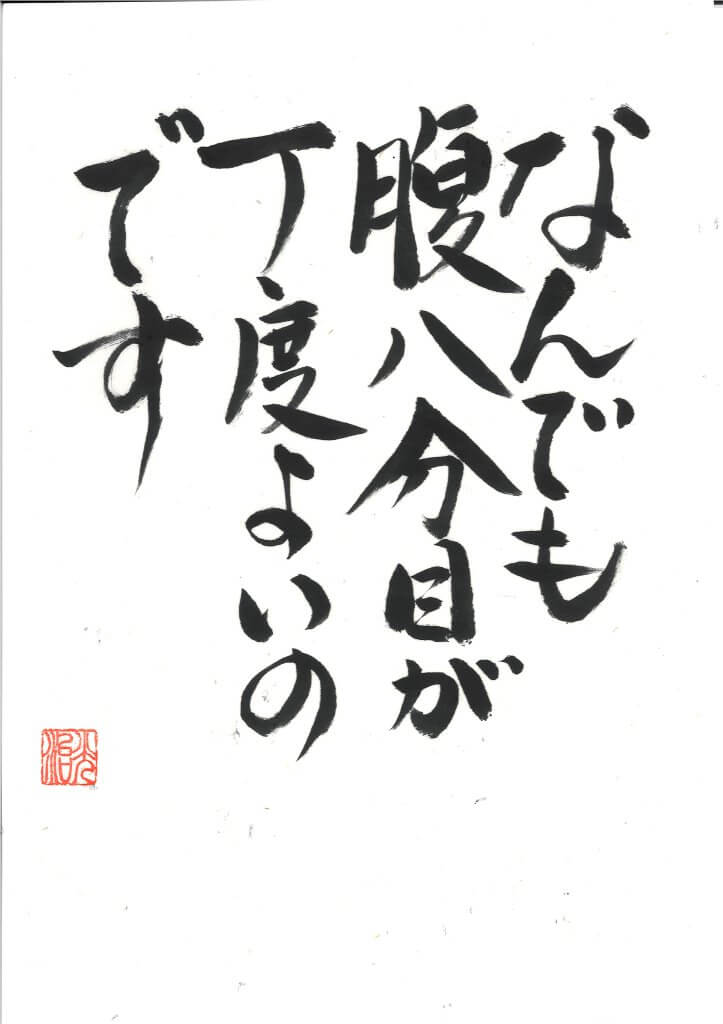 なんでも
腹八分目が
丁度よいの
です